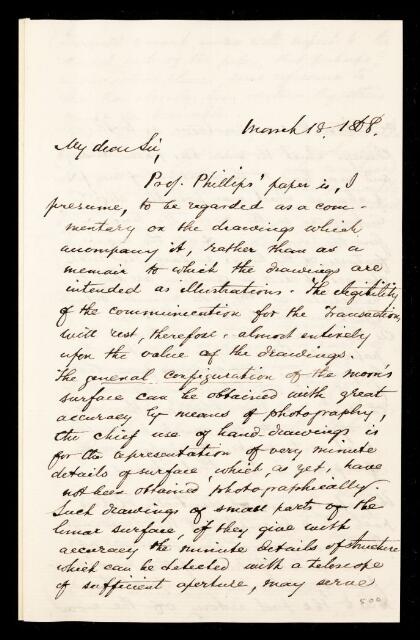 March 13. 1868.
My dear Sir,
Prof. Phillips' paper is, I
presume, to be regarded as a com-
mentary on the drawings which
accompany it, rather than as a
memoir to which the drawings are
intended as illustrations. The eligibility
of the communication for the Transactions,
will rest, therefore, almost entirely
upon the value of the drawings.
The general configuration of the moon's
surface can be obtained with great
accuracy by means of photography,
the chief use of hand-drawings is
for the representation of very minute
details of surface which, as yet, have
not been obtained photographically.
Such drawings of small parts of the
lunar surface, if they give with
accuracy the minute details of structure
which can be detected with a telescope
of sufficient aperture, may serve